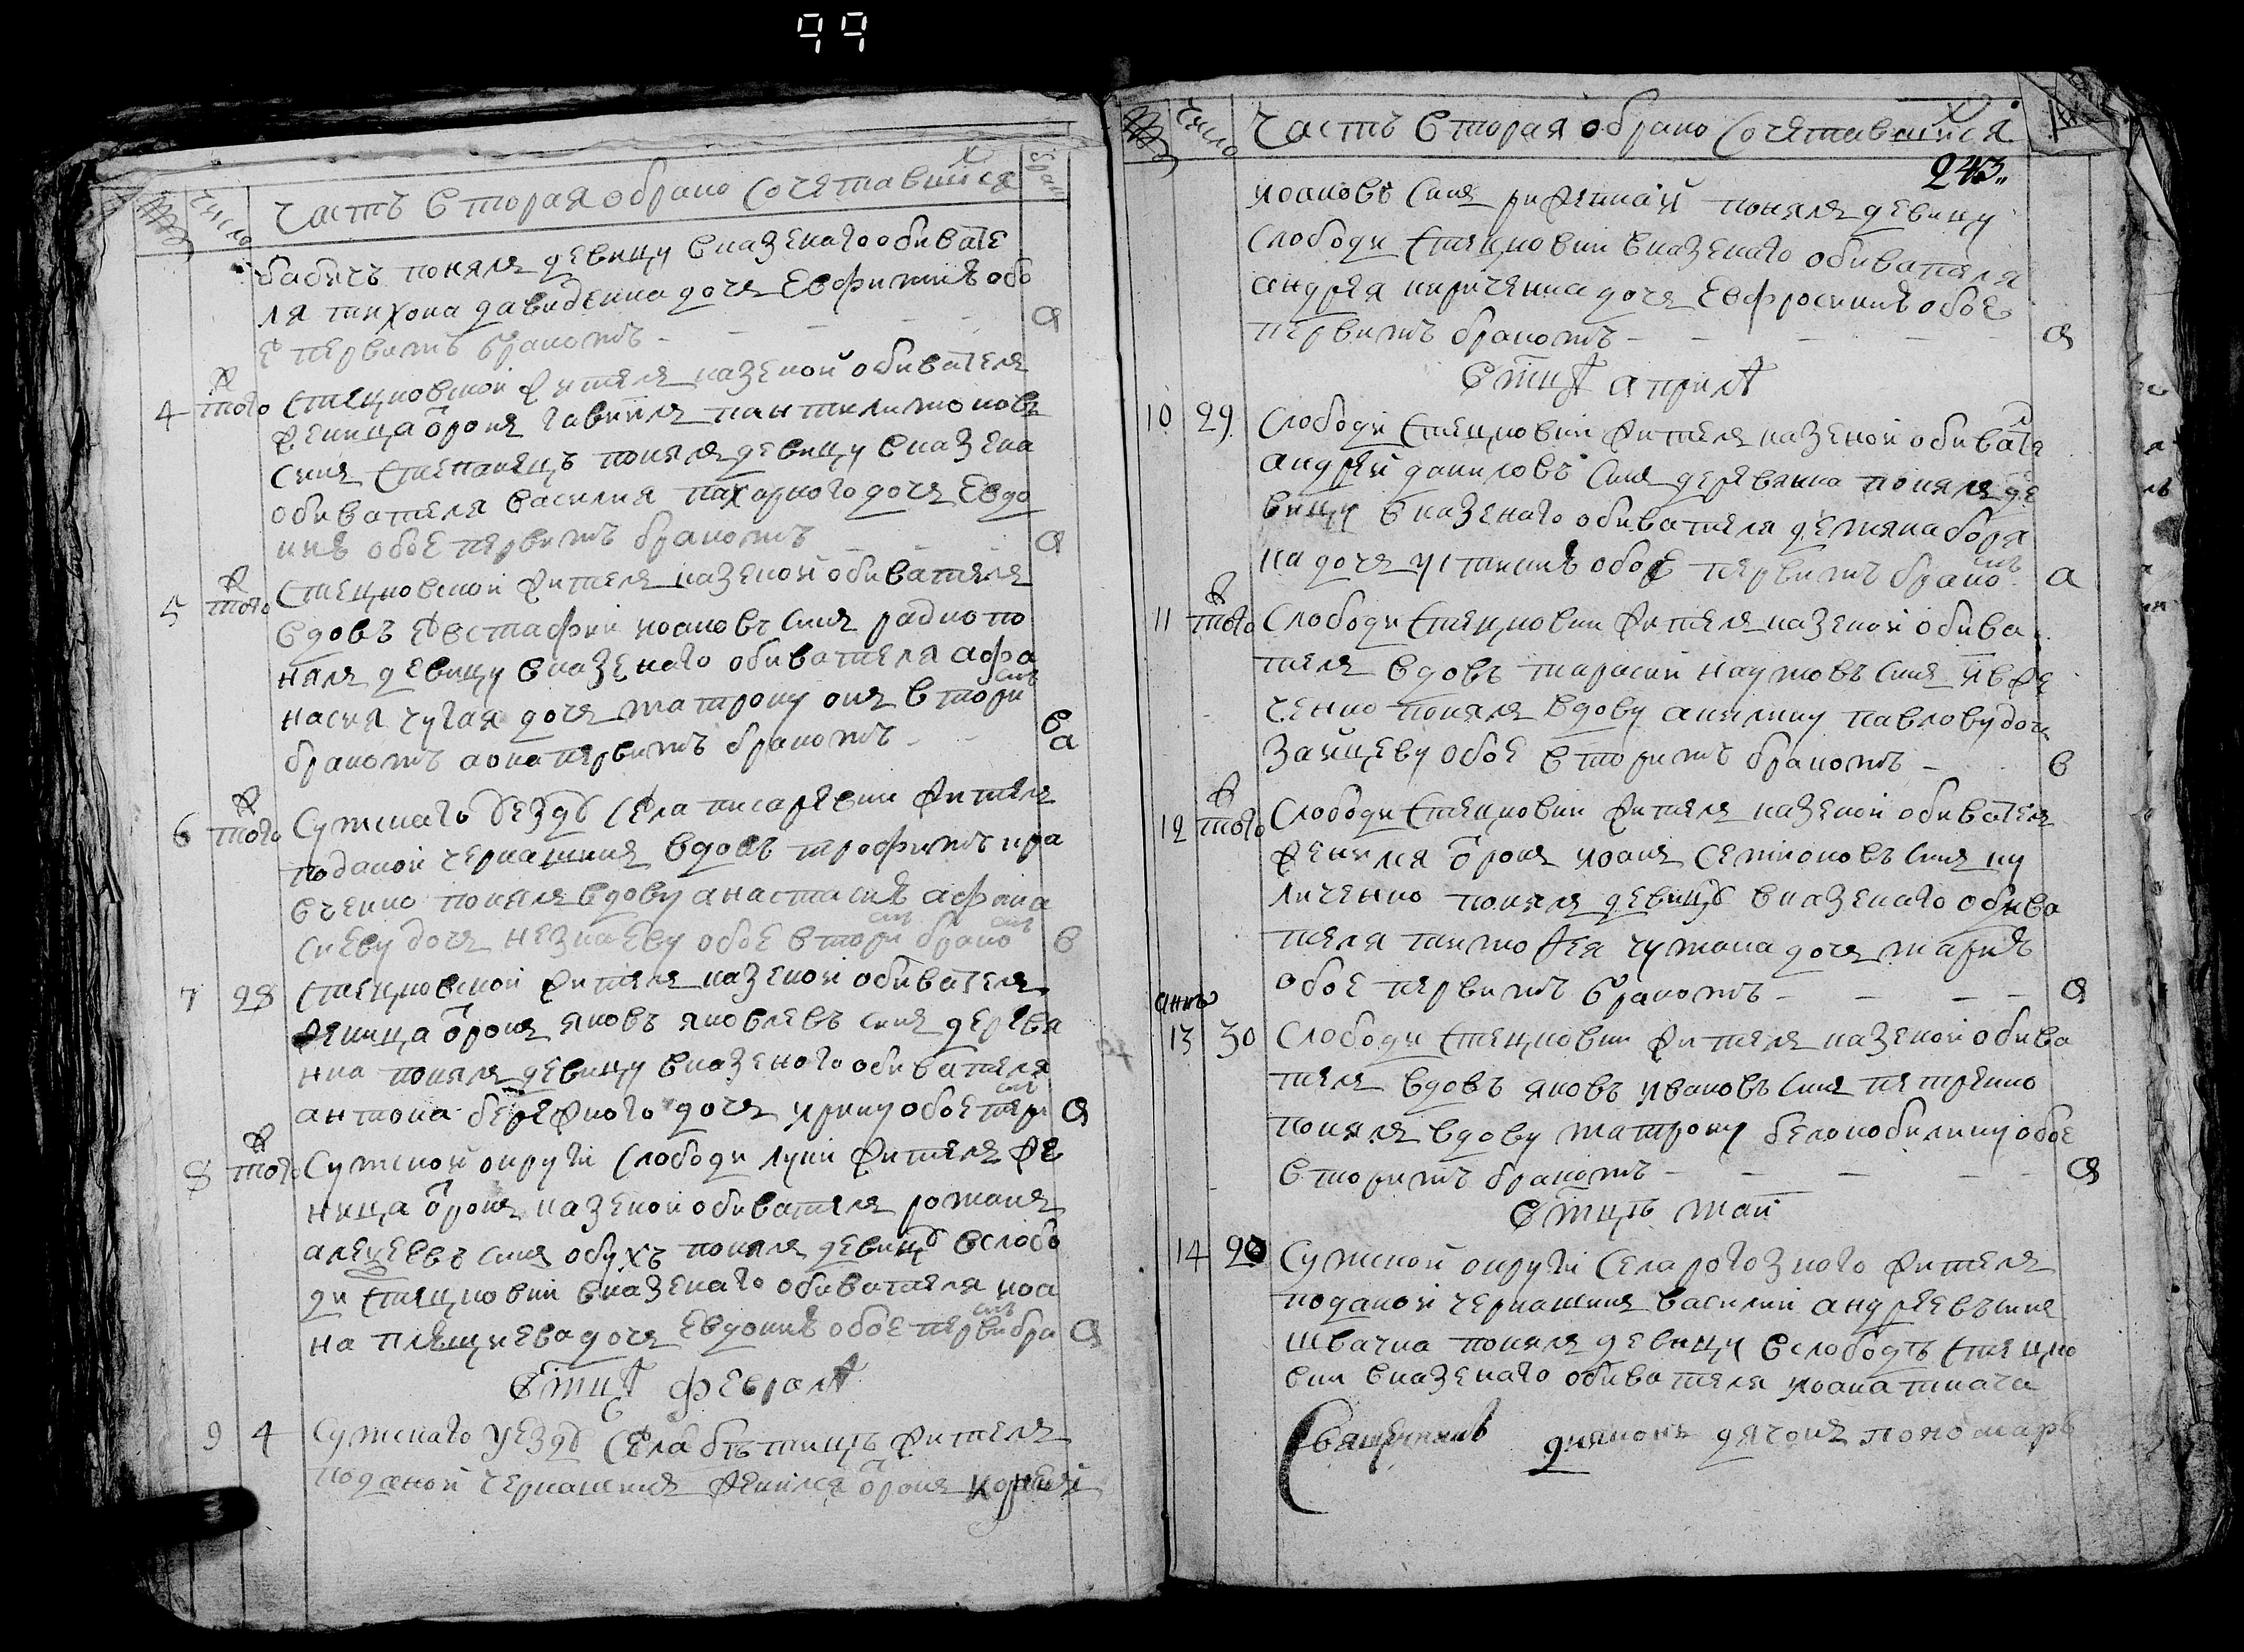 99
число Часть вторая о брако сочетавшихся
бабичъ понялъ девицу вказеного обивате
ля тихона давиденка дочъ Евфимию обо
е первимъ бракомъ — а
4 тогож Стецковской жителъ казеной обивателъ
женица отрокъ гавриилъ пантилимоновъ
синъ степанецъ понялъ девицу вказена
обивателя василия пахарного дочъ Евдо
кию обое первимъ бракомъ — а
5 тогож Стецковской жителъ казеной обивателъ
вдовъ Евстафий иоановъ синъ радко по
нялъ девицу вказеного обивателя афа
насия чугая дочъ матрону онъ вторимъ
бракомъ а она первимъ бракомъ — в а
6 тогож Сумскаго уезду села писаревки жителъ
поданой черкашенинъ вдовъ трофимъ кра
вченко понялъ вдову анастасию афана
сиеву дочъ незнаеву обое вторимъ бракомъ в
7 28 Стецковской жителъ казеной обивателъ
женица отрокъ яковъ яковлевъ синъ дерева
нка понялъ девицу вказеного обивателя
антона бережного дочъ ирину обое первимъ а
8 тогож Сумской округи слободи луки жителъ же
ница отрокъ казеной обивателъ романъ
алецеевъ синъ обухъ понялъ девицу вслобо
ди Стецковки вказеного обивателя иоа
на плещиева дочъ Евдокию обое первимъ бра а
Вмцѣ февралѣ
9 4 Сумскаго уезду села битицѣ жителъ
поданой черкашенинъ женился отрокъ корней
число Часть вторая о брако сочетавшихся
243
иоановъ синъ рижкий понялъ девицу
слободи Стецковки вказеного обивателя
андрея кириченка дочъ Евфросинию обое
первимъ бракомъ — а
Вмцѣ априлѣ
10 29 Слободи Стецковки жителъ казеной обивателъ
андрей даниловъ синъ деревянко понялъ де
вицу вказеного обивателя демяна боря
ка дочъ устинию обое первимъ бракомъ а
11 тогож Слободи Стецковки жителъ казеной обива
телъ вдовъ тарасий наумовъ синъ ивже
ченко понялъ вдову акилину павлову дочъ
зайцеву обое вторимъ бракомъ — в
12 тогож Слободи Стецковки жителъ казеной обивателъ
женился отрокъ иоанъ семионовъ синъ ку
личенко понялъ девицу вказеного обива
теля тимофея чумака дочъ марию
обое первимъ бракомъ — а
13 30 Слободи Стецковки жителъ казеной обива
телъ вдовъ яковъ ивановъ синъ петренко
понялъ вдову матрону белокобилину обое
вторимъ бракомъ — а
Вмцѣ май
14 20 Сумской округи села рогозного жителъ
поданой черкашенинъ василий андреевъ синъ
швачка понялъ девицу вслободѣ Стецко
вки вказеного обивателя иоана ткача
Священникъ диаконъ дячокъ пономарь